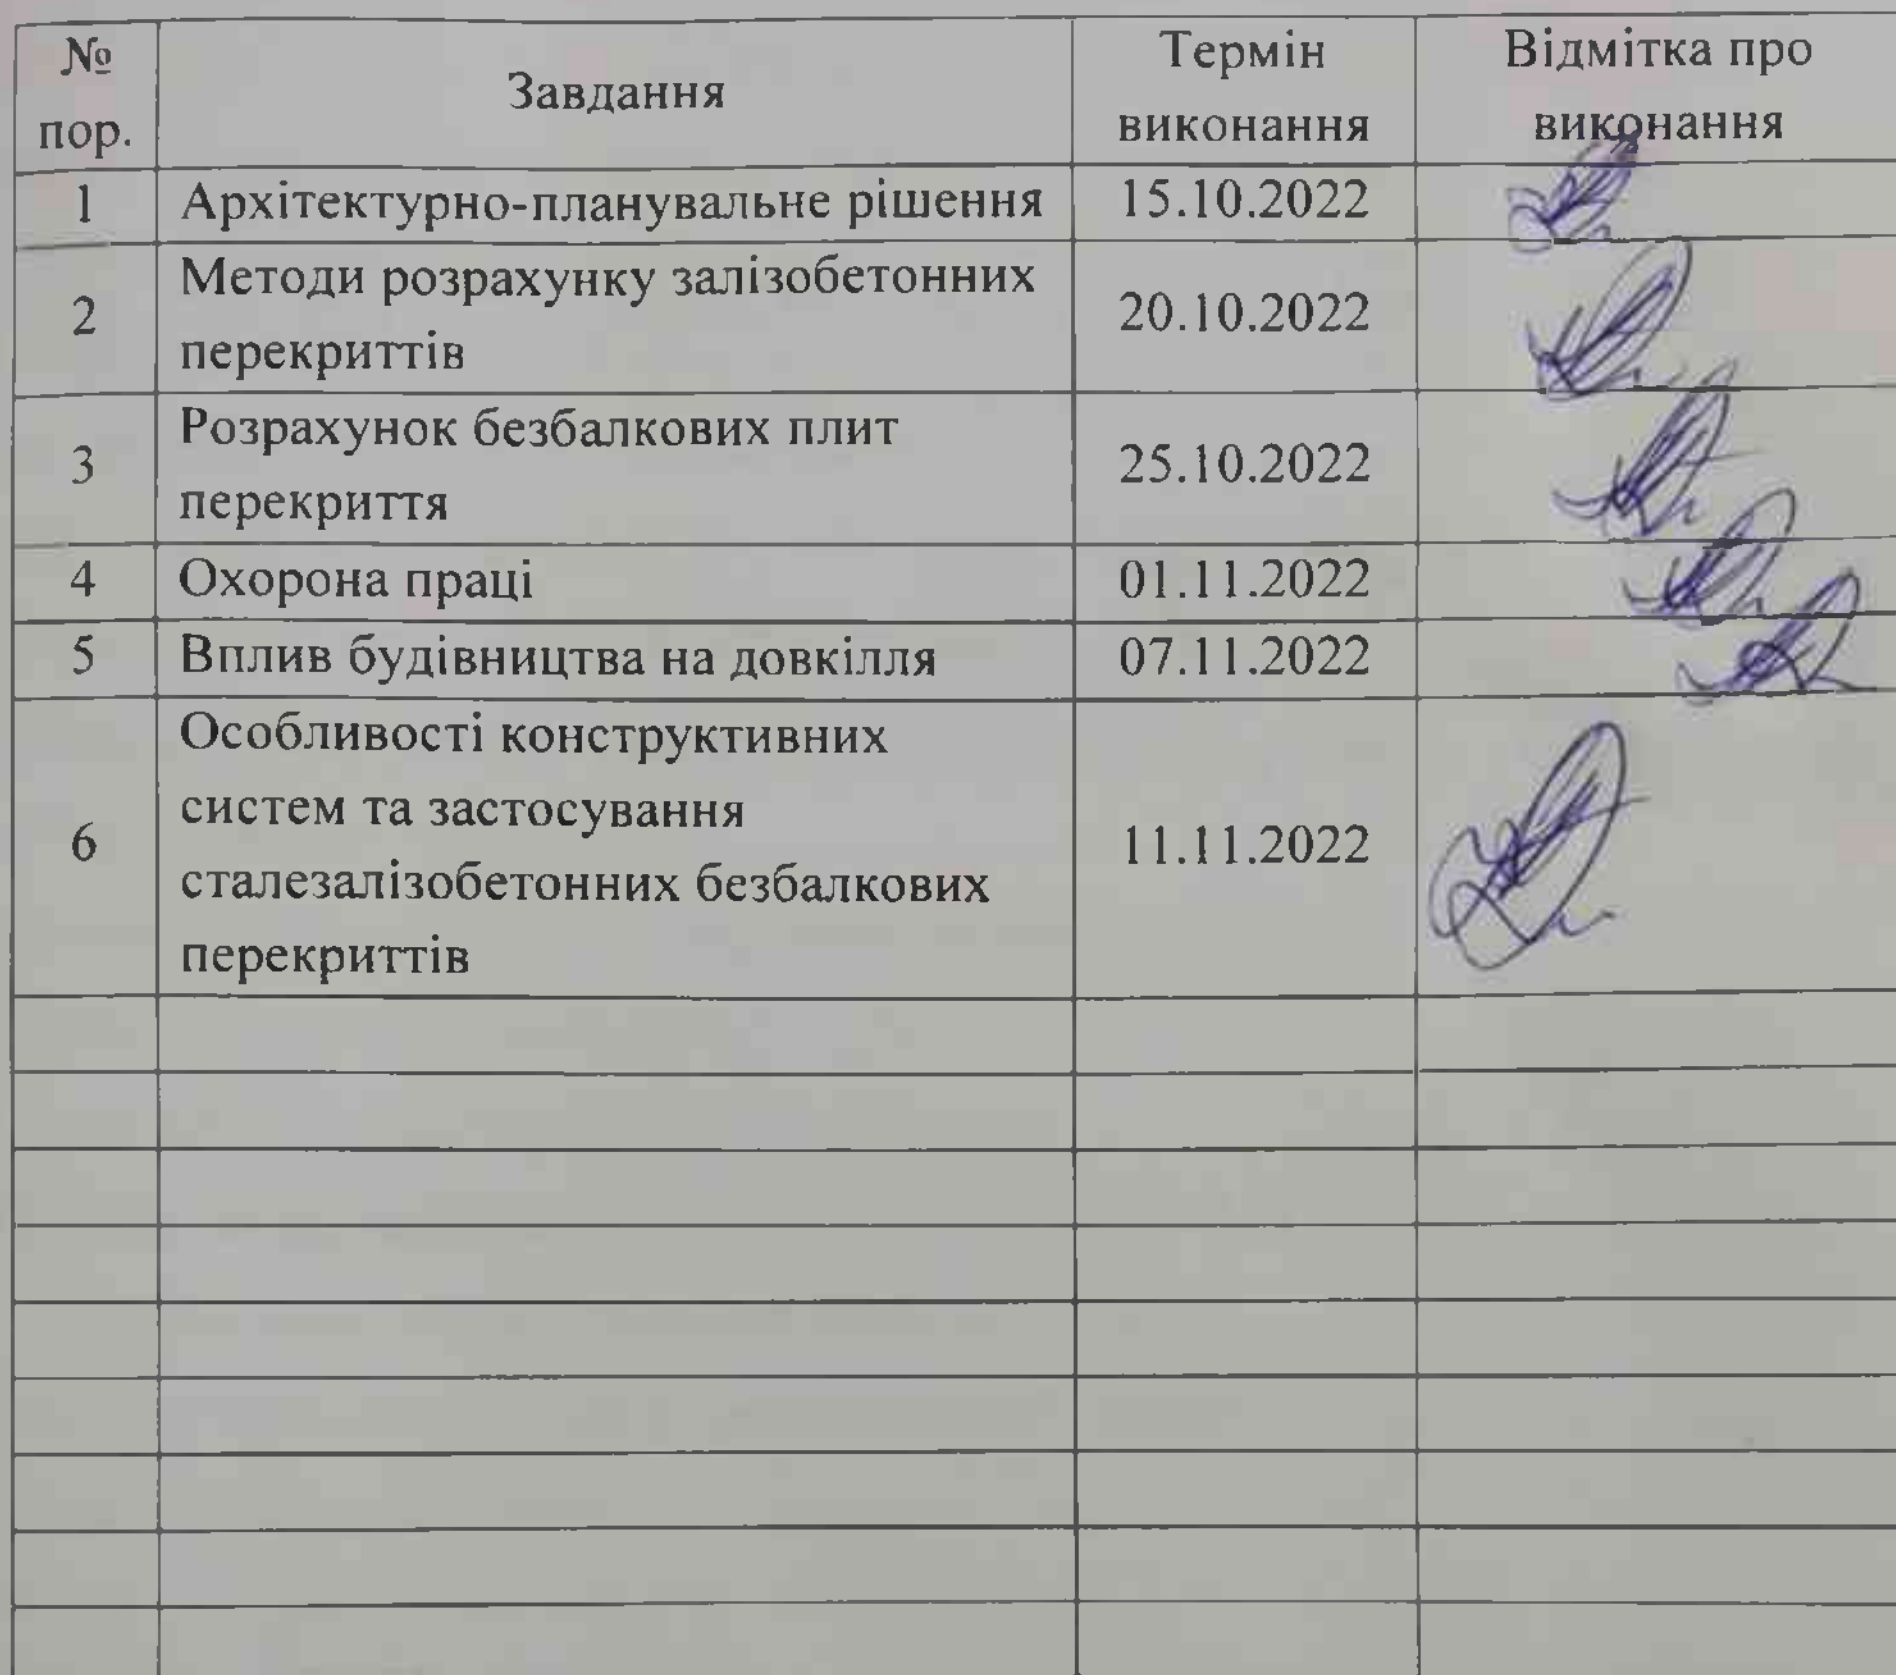 № пор. Завдання Термін виконання Відмітка про виконання
1 Архітектурно-планувальне рішення 15.10.2022
2 Методи розрахунку залізобетонних перекриттів 20.10.2022
3 Розрахунок безбалкових плит перекриття 25.10.2022
4 Охорона праці 01.11.2022
5 Вплив будівництва на довкілля 07.11.2022
6 Особливості конструктивних систем та застосування сталезалізобетонних безбалкових перекриттів 11.11.2022